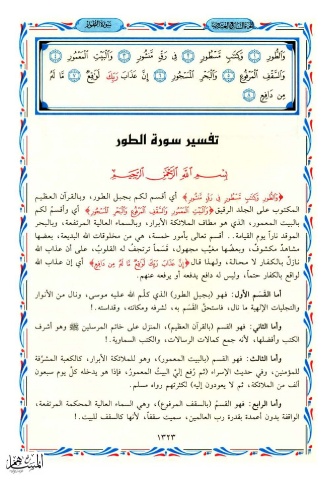 سورة الطور
وَالطُّورِ ۝١ وَكِتَابٍ مَّسْطُورٍ ۝٢ فِي رَقٍّ مَّنشُورٍ ۝٣ وَالْبَيْتِ الْمَعْمُورِ ۝٤
وَالسَّقْفِ الْمَرْفُوعِ ۝٥ وَالْبَحْرِ الْمَسْجُورِ ۝٦ إِنَّ عَذَابَ رَبِّكَ لَوَاقِعٌ ۝٧ مَّا لَهُ
مِن دَافِعٍ ۝٨
تفسير سورة الطور
بِسْمِ اللَّهِ الرَّحْمَٰنِ الرَّحِيمِ
﴿وَالطُّورِ وَكِتَابٍ مَّسْطُورٍ فِي رَقٍّ مَّنشُورٍ﴾ أي أقسم لكم بجبل الطور، وبالقرآن العظيم
المكتوب على الجلد الرقيق ﴿وَالْبَيْتِ الْمَعْمُورِ وَالسَّقْفِ الْمَرْفُوعِ وَالْبَحْرِ الْمَسْجُورِ﴾ أي وأقسم لكم
بالبيت المعمور، الذي هو مطاف الملائكة الأبرار، وبالسماء العالية المرتفعة، وبالبحر
الموقد ناراً يوم القيامة.. أقسم تعالى بأمور خمسة، هي من مخلوقات الله البديعة، بعضها
مشاهدٌ مكشوفٌ، وبعضُها مغيَّب مجهول، قسماً ترتجفُ له القلوبُ، على أن عذاب الله
نازلٌ بالكفار لا محالة، ولهذا قال ﴿إِنَّ عَذَابَ رَبِّكَ لَوَاقِعٌ مَّا لَهُ مِن دَافِعٍ﴾ أي إن عذاب الله
لواقع بالكفار حتماً، وليس له دافع يدفعه أو يرفعه عنهم.
أما القَسَم الأول: فهو (بجبل الطور) الذي كلّم الله عليه موسى، ونال من الأنوار
والتجليات الإلهية ما نال، فاستحقَّ القَسَم به، لشرفه ومكانته، وقداسته.!
وأما الثاني: فهو القسم (بالقرآن العظيم)، المنزل على خاتم المرسلين ﷺ وهو أشرف
الكتب وأفضلها، لأنه جمع كمالات الرسالات، والكتب السماوية.!
وأما الثالث: فهو القسم (بالبيت المعمور)، وهو للملائكة الأبرار، كالكعبة المشرَّفة
للمؤمنين، وفي حديث الإسراء (ثم رُفع إليَّ البيتُ المعمورُ، فإذا هو يدخله كلَّ يوم سبعون
ألف من الملائكة، ثم لا يعودون إليه) لكثرتهم رواه مسلم.
وأما الرابع: فهو القسمُ (بالسقف المرفوع)، وهي السماء العالية المحكمة المرتفعة،
الواقفة بدون أعمدة بقدرة رب العالمين، سميت سقفاً، لأنها كالسقف للبيت.!
١٣٢٣